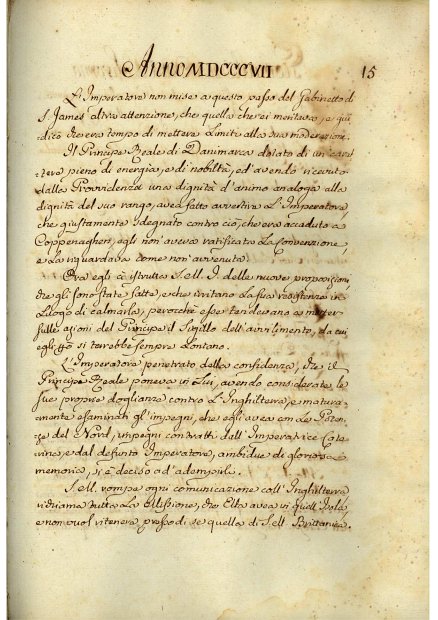 Anno MDCCCVII
15
L'Imperatore non mise a questo passo del Gabinetto di
S. James altra attenzione, che quella che ei meritava, e giu-
dicò che era tempo di mettere limiti alla sua moderazione.
Il Principe Reale di Danimarca dotato di un carat-
tere pieno di energia, e di nobiltà, ed avendo ricevuto
dalla Provvidenza una dignità d'animo analoga alla
dignità del suo rango, avea fatto avvertire L'Imperatore,
che giustamente sdegnato contro ciò, che era accaduto a
Coppenaghen, egli non aveva ratificato La Convenzione
e La riguardava come non avvenuta.
Ora egli à istrutta S. M. I. delle nuove proposizioni,
che gli sono state fatte, e che irritano La sua resistenza in
Luogo di calmarla, perocchè esse tendevano a metter
sulle azioni del Principe il Sigillo dell'avvilimento, da cui
egli si terrebbe sempre Lontano.
L'Imperatore penetrato della confidenza, che il
Principe Reale poneva in Lui, avendo considerate le
sue proprie doglianze contro L'Inghilterra, e matura-
mente esaminati gl'impegni, che egli avea con Le Poten-
ze del Nord, impegni contratti dall'Imperatrice Cate-
rina, e dal defunto Imperatore, ambidue di gloriosa
memoria, si è deciso ad adempirli.
S. M. rompe ogni comunicazione coll'Inghilterra
richiama tutta La Missione, che Ella avea in quell'Isola,
e non vuol ritenere presso di se quella di S. M. Brittanica.